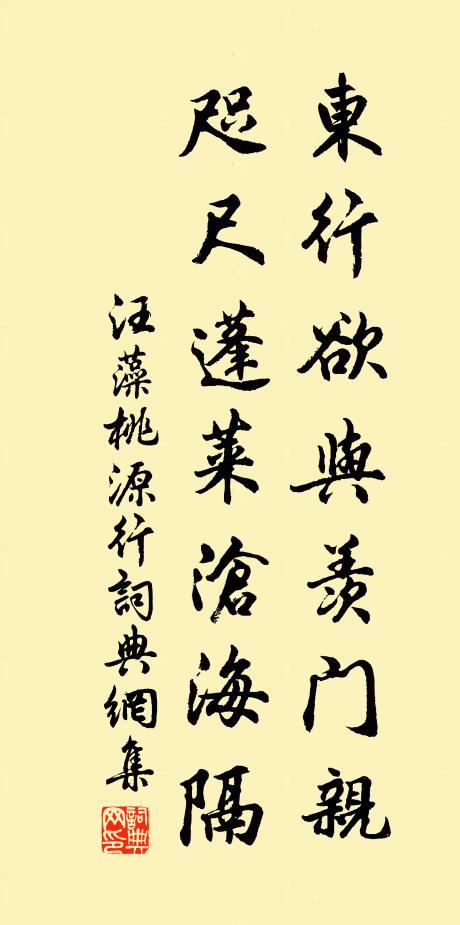 東行欲與羨門親
咫尺蓬萊滄海隔
汪藻桃源行詞典網集
詞典网印